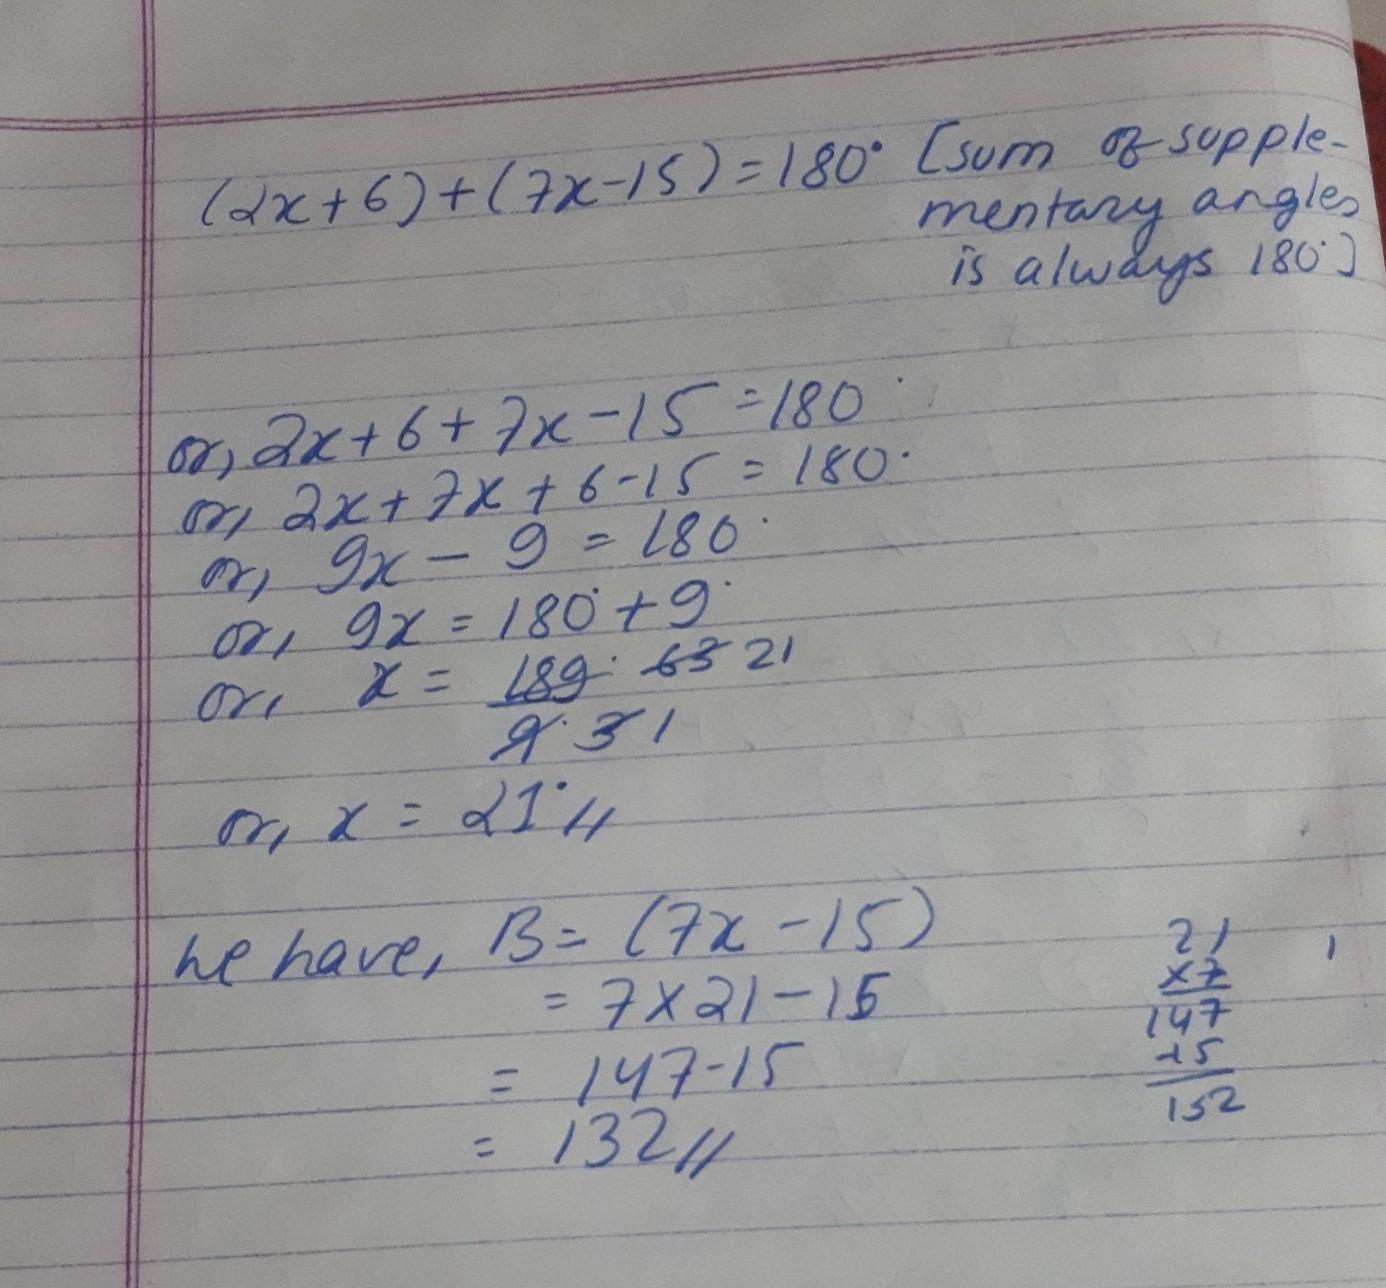 (2x+6)+(7x-15)=180° [sum of supple-
mentary angles
is always 180°]
or, 2x+6+7x-15=180°
or, 2x+7x+6-15=180°
or, 9x-9=180°
or, 9x=180°+9°
or, x= 189° 63 21
9° 3 1
or, x=21°//
we have, B=(7x-15)
=7x21-15
=147-15
=132//
21
x7
147
-15
152